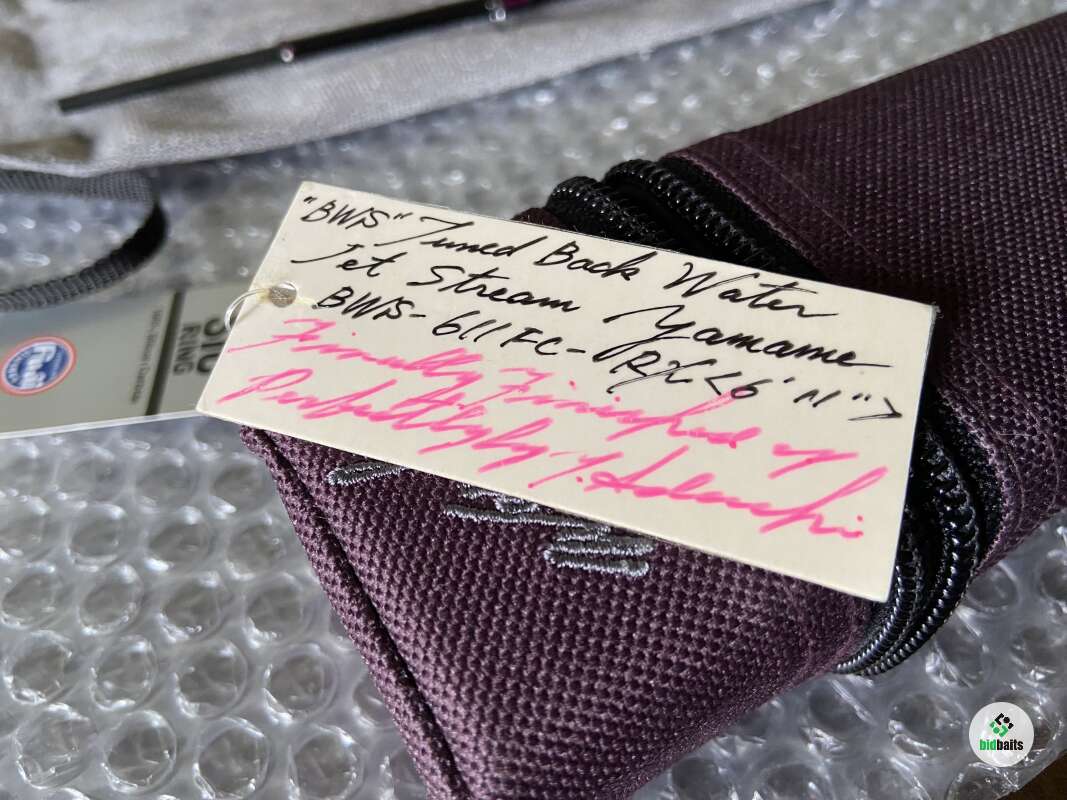 "BWS" Tuned Back Water
Jet Stream Yamame
BWS-611FC-RX <6'11">
Finnully Finisfed up
Perfecttly by Y.Adauchi
Fuji
SIC
RING
bidbaits